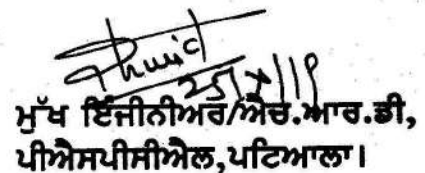 25/7/19
ਮੁੱਖ ਇੰਜੀਨੀਅਰ/ਐਚ.ਆਰ.ਡੀ,
ਪੀਐਸਪੀਸੀਐਲ,ਪਟਿਆਲਾ।